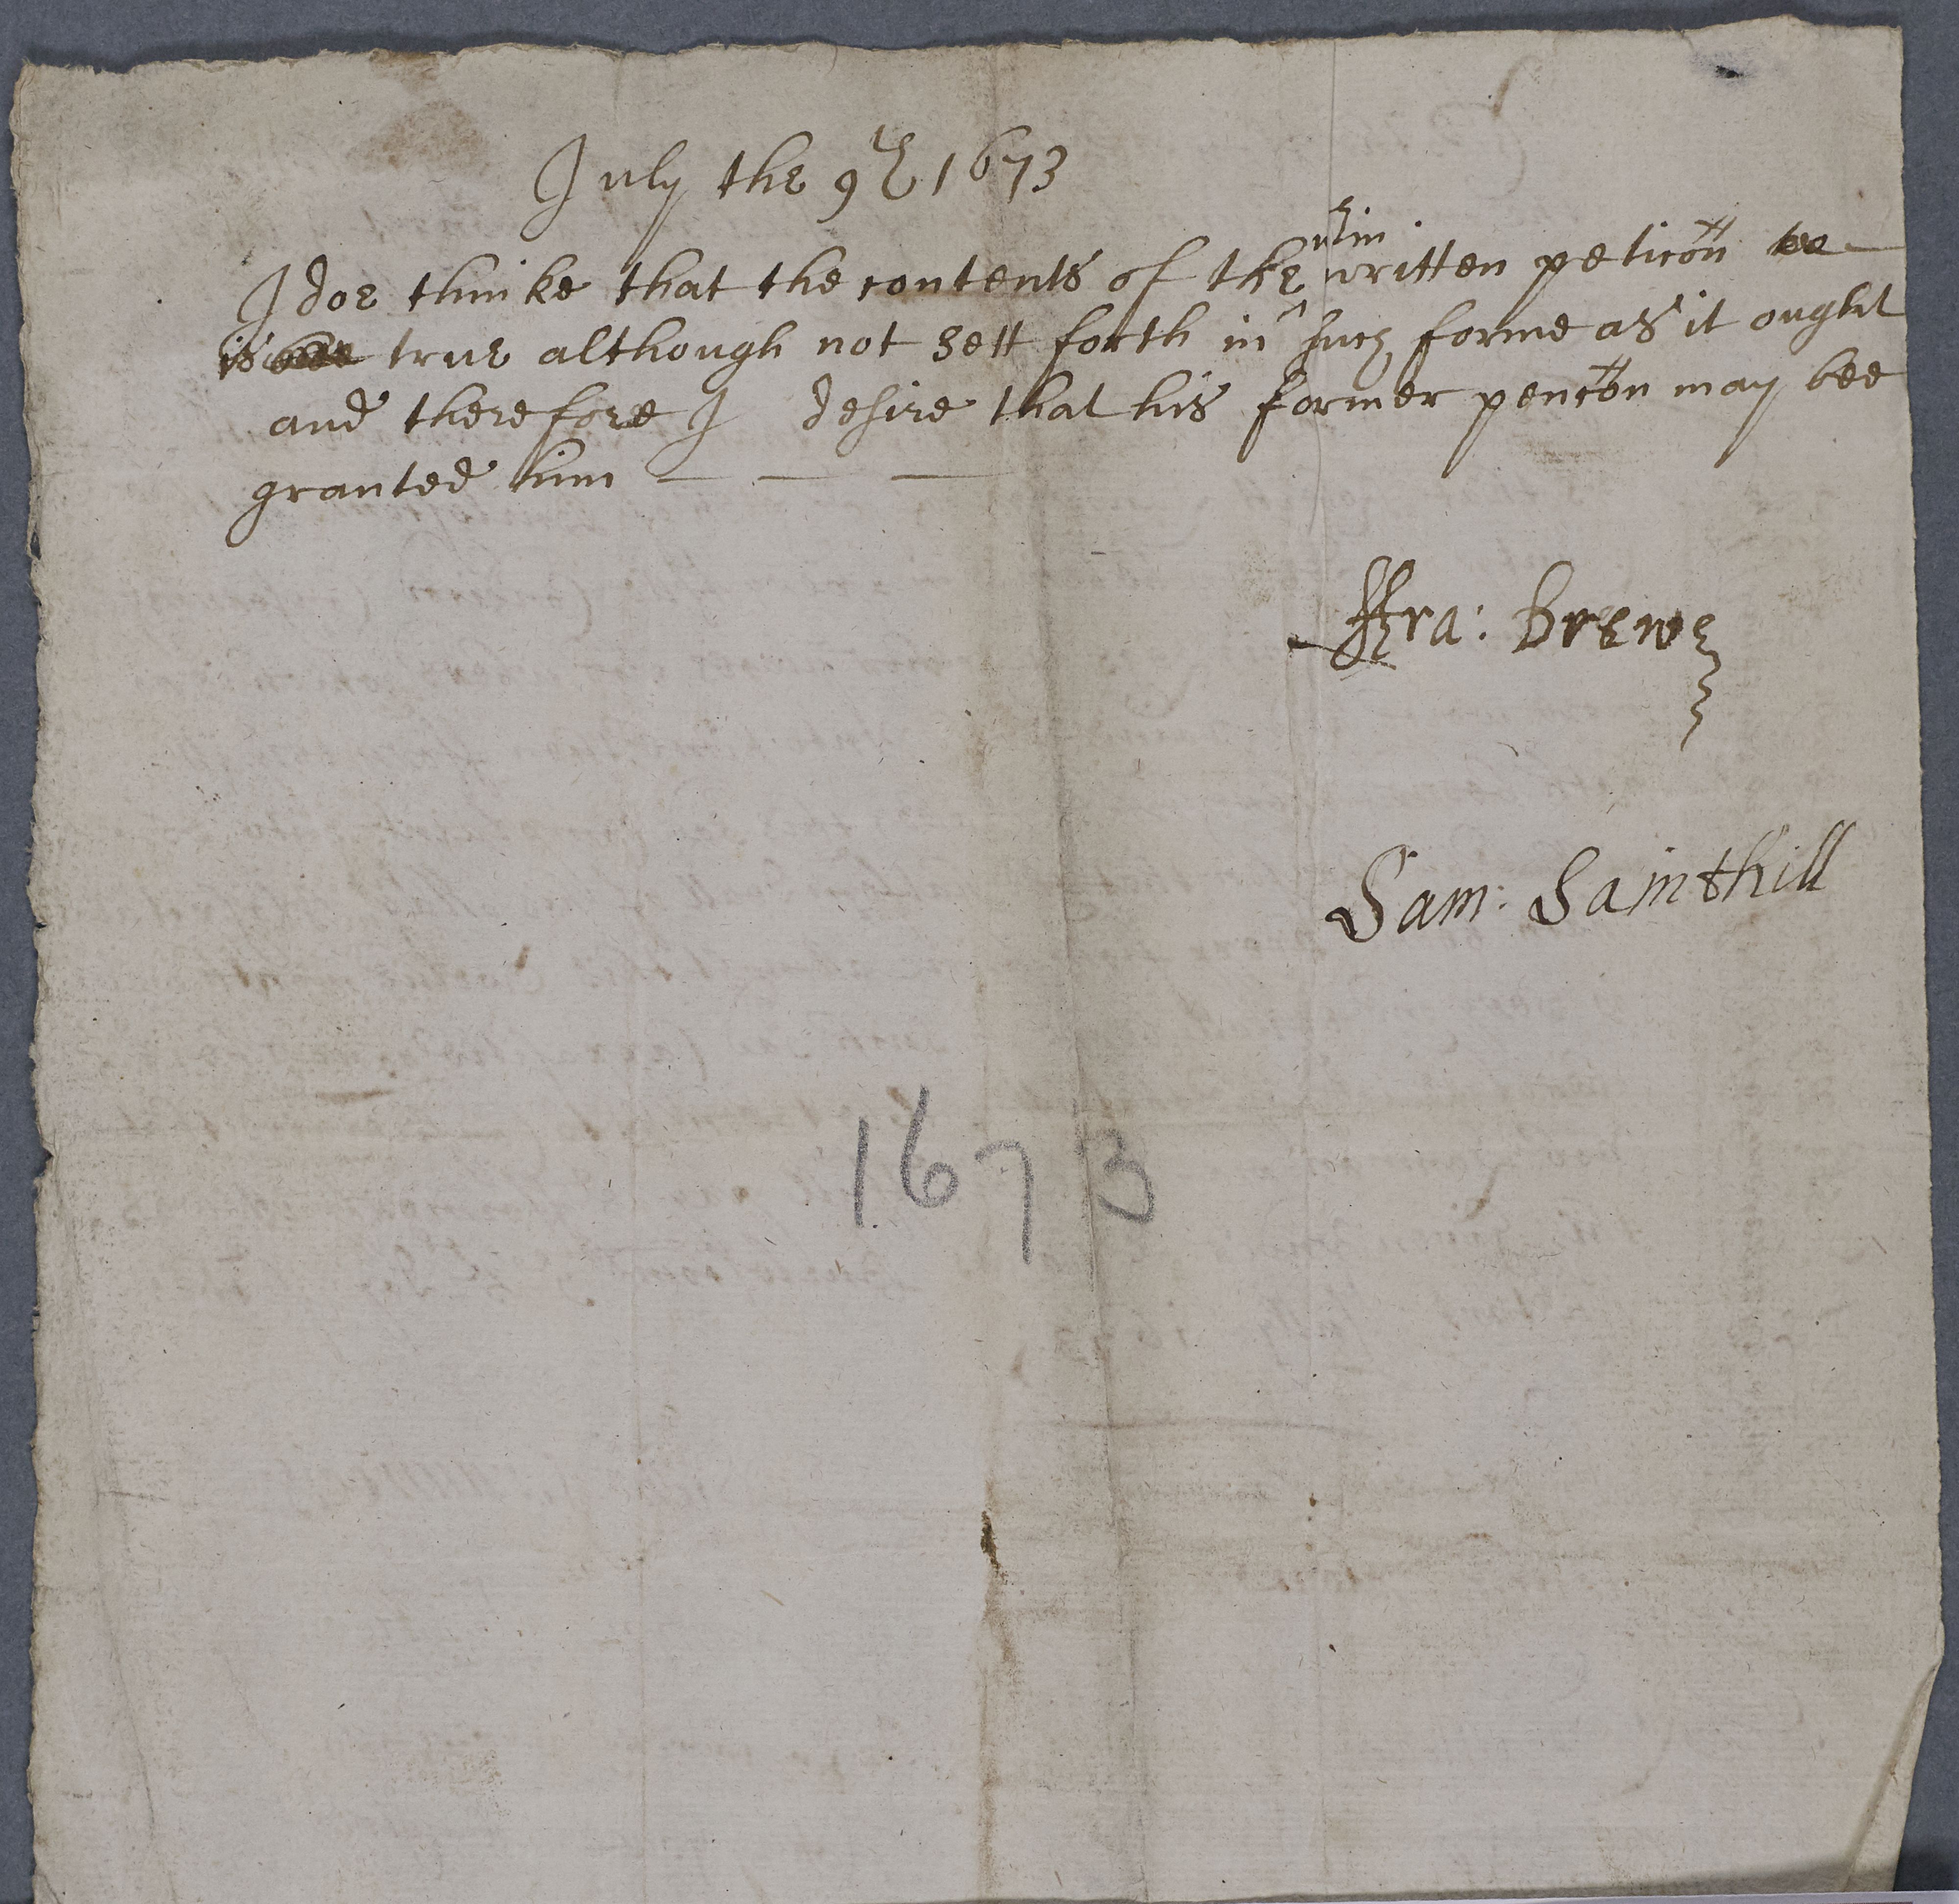 July the 9th 1673
I doe thinke that the contents of the wthin written peticon
is true although not sett forth in such forme as it ought
and therefore I desire that his former pencon may bee
granted him
ffra: Drewe
Sam: Sainthill
1673